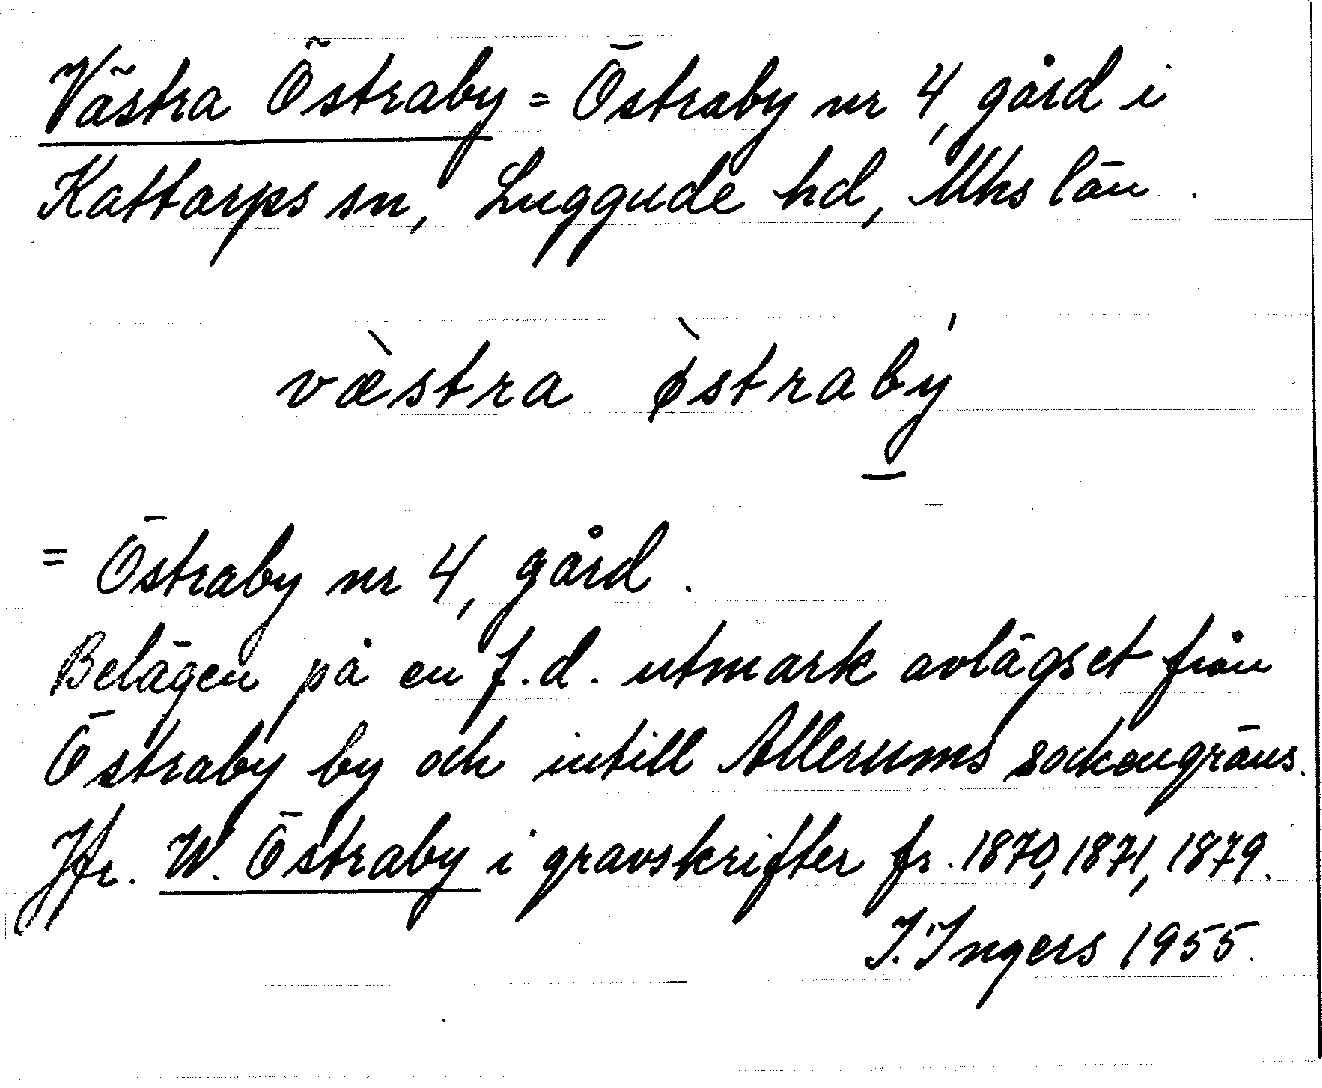 Västra Östraby = Östraby nr 4, gård i
Kattarps sn, Luggude hd, Mhs län.
væ̀stra ø̀strabý
= Östraby nr 4, gård.
Belägen på en f.d. utmark avlägset från
Östraby by och intill Allerums sockengräns.
Jfr. W. Östraby i gravskrifter fr. 1870, 1871, 1879.
I. Ingers 1955.